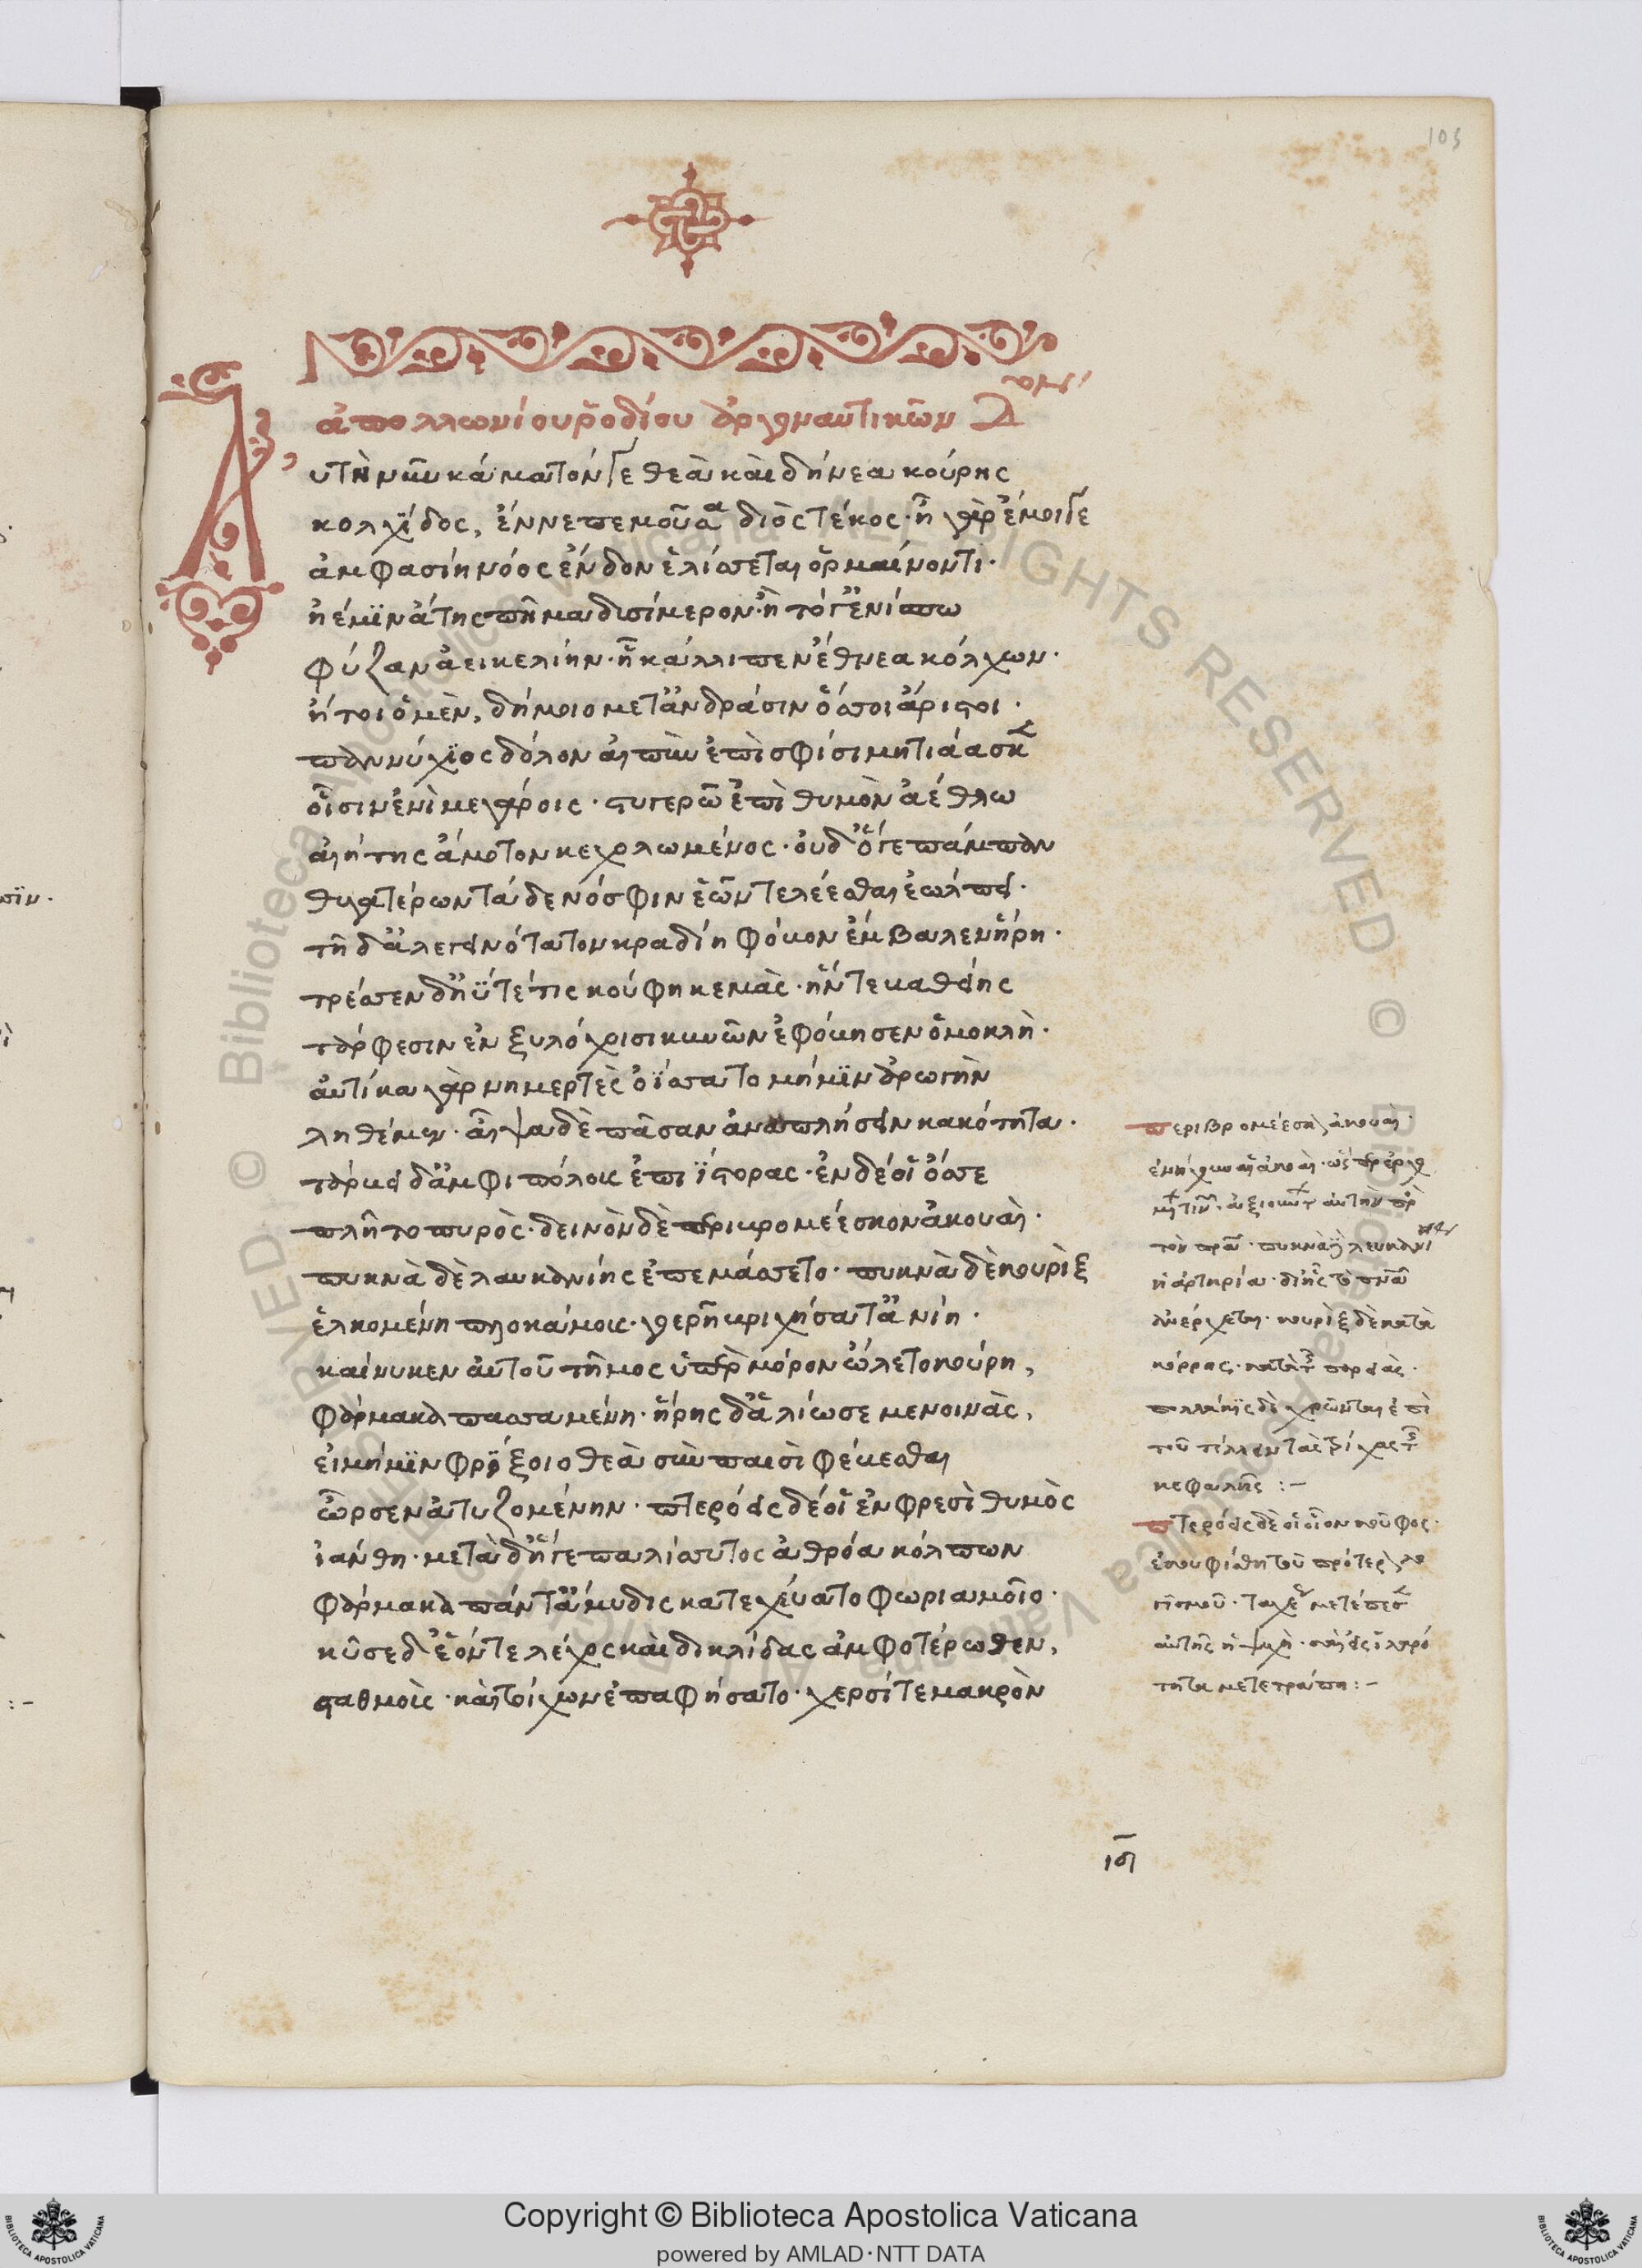 105
ἀπολλωνίου ῥοδίου ἀργοναυτικῶν Δ
Αὐτὴ νῦν κάματόν γε θεὰ καὶ δήνεα κούρης
κολχίδος, ἔννεπε μοῦσα διὸς τέκος· ἦ γὰρ ἔμοιγε
ἀμφασίη νόος ἔνδον ἑλίσσεται ὁρμαίνοντι·
ἠέ μϊν ἄτης πῆμα δυσίμερον· ἢ τό γ' ἐνίσπω
φύζαν ἀεικελίην· ἧ κάλλιπεν ἔθνεα κόλχων·
ἤτοι ὁ μὲν, δήμοιο μετ' ἀνδράσιν ὅσσοι ἄριστοι·
παννύχϊος δόλον αἰπὺν ἐπὶ σφίσι μητιάασκεν
οἷσιν ἐνὶ μεγάροις· στυγερῶ ἐπὶ θυμὸν ἀέθλω
αἰήτης ἄμοτον κεχολωμένος· οὐδ' ὅ γε πάμπαν
θυγατέρων τάδε νόσφιν ἑῶν τελέεσθαι ἐώλπει·
τῆ δ' ἀλεγεινότατον κραδίη φόβον ἔμβαλεν ἥρη·
τρέσσεν δ' ἠΰτέ τις κούφη κεμὰς· ἥν τε βαθείης
τάρφεσιν ἐν ξυλόχοισι κυνῶν ἐφόβησεν ὁμοκλὴ·
αὐτίκα γὰρ νημερτὲς ὀΐσσατο μή μϊν ἀρωγὴν
ληθέμεν· αἶψα δὲ πᾶσαν ἀναπλήσειν κακότητα·
τάρβει δ' ἀμφιπόλους ἐπιΐστορας· ἐν δέ οἱ ὄσσε
πλῆτο πυρὸς· δεινὸν δὲ περιβρομέεσκον ἀκουαὶ·
πυκνὰ δὲ λαυκανίης ἐπεμάσσετο· πυκνὰ δὲ κουρὶξ
ἑλκομένη πλοκάμους· γοερῆ βρυχήσατ' ἀνίη·
καί νύ κεν αὐτοῦ τῆμος ὑπὲρ μόρον ὤλετο κούρη,
φάρμακα πασσαμένη· ἥρης δ' ἁλίωσε μενοινὰς,
εἰ μή μϊν φρίξοιο θεὰ σὺν παισὶ φέβεσθαι
ὦρσεν ἀτυζομένην· πτερόεις δέ οἱ ἐν φρεσὶ θυμὸς
ἰάνθη· μετὰ δ' ἥ γε παλίσσυτος ἀθρόα κόλπων
φάρμακα πάντ' ἄμυδις κατεχεύατο φωριαμοῖο·
κύσε δ' ἑόν τε λέχος καὶ δικλίδας ἀμφοτέρωθεν,
σταθμοὺς· καὶ τοίχων ἐπαφήσατο· χερσί τε μακρὸν
περιβρομέεσκον ἀκουαὶ·
πυκνὰ
ἡ ἀρτηρία· δι' ἧς τὸ πνεῦμα
ἀνέρχεται· κουρὶξ δὲ κατὰ
κόρρας· κατὰ τῆς κορσὰς·
πολλάκϊς δὲ χρῶνται ἐπὶ
τοῦ τίλλειν τὰς τρίχας τῆς
κεφαλῆς :-
πτερόεις δέ οἱ οἷον κοῦφος·
ἐκουφίσθη τοῦ προτέρου λο
γισμοῦ· ταχέως μετέπεσεν
αὐτῆς ἡ ψυχὴ· καὶ εἰς ἱλαρό
τητα μετετράπη :-
Copyright © Biblioteca Apostolica Vaticana
powered by AMLAD·NTT DATA